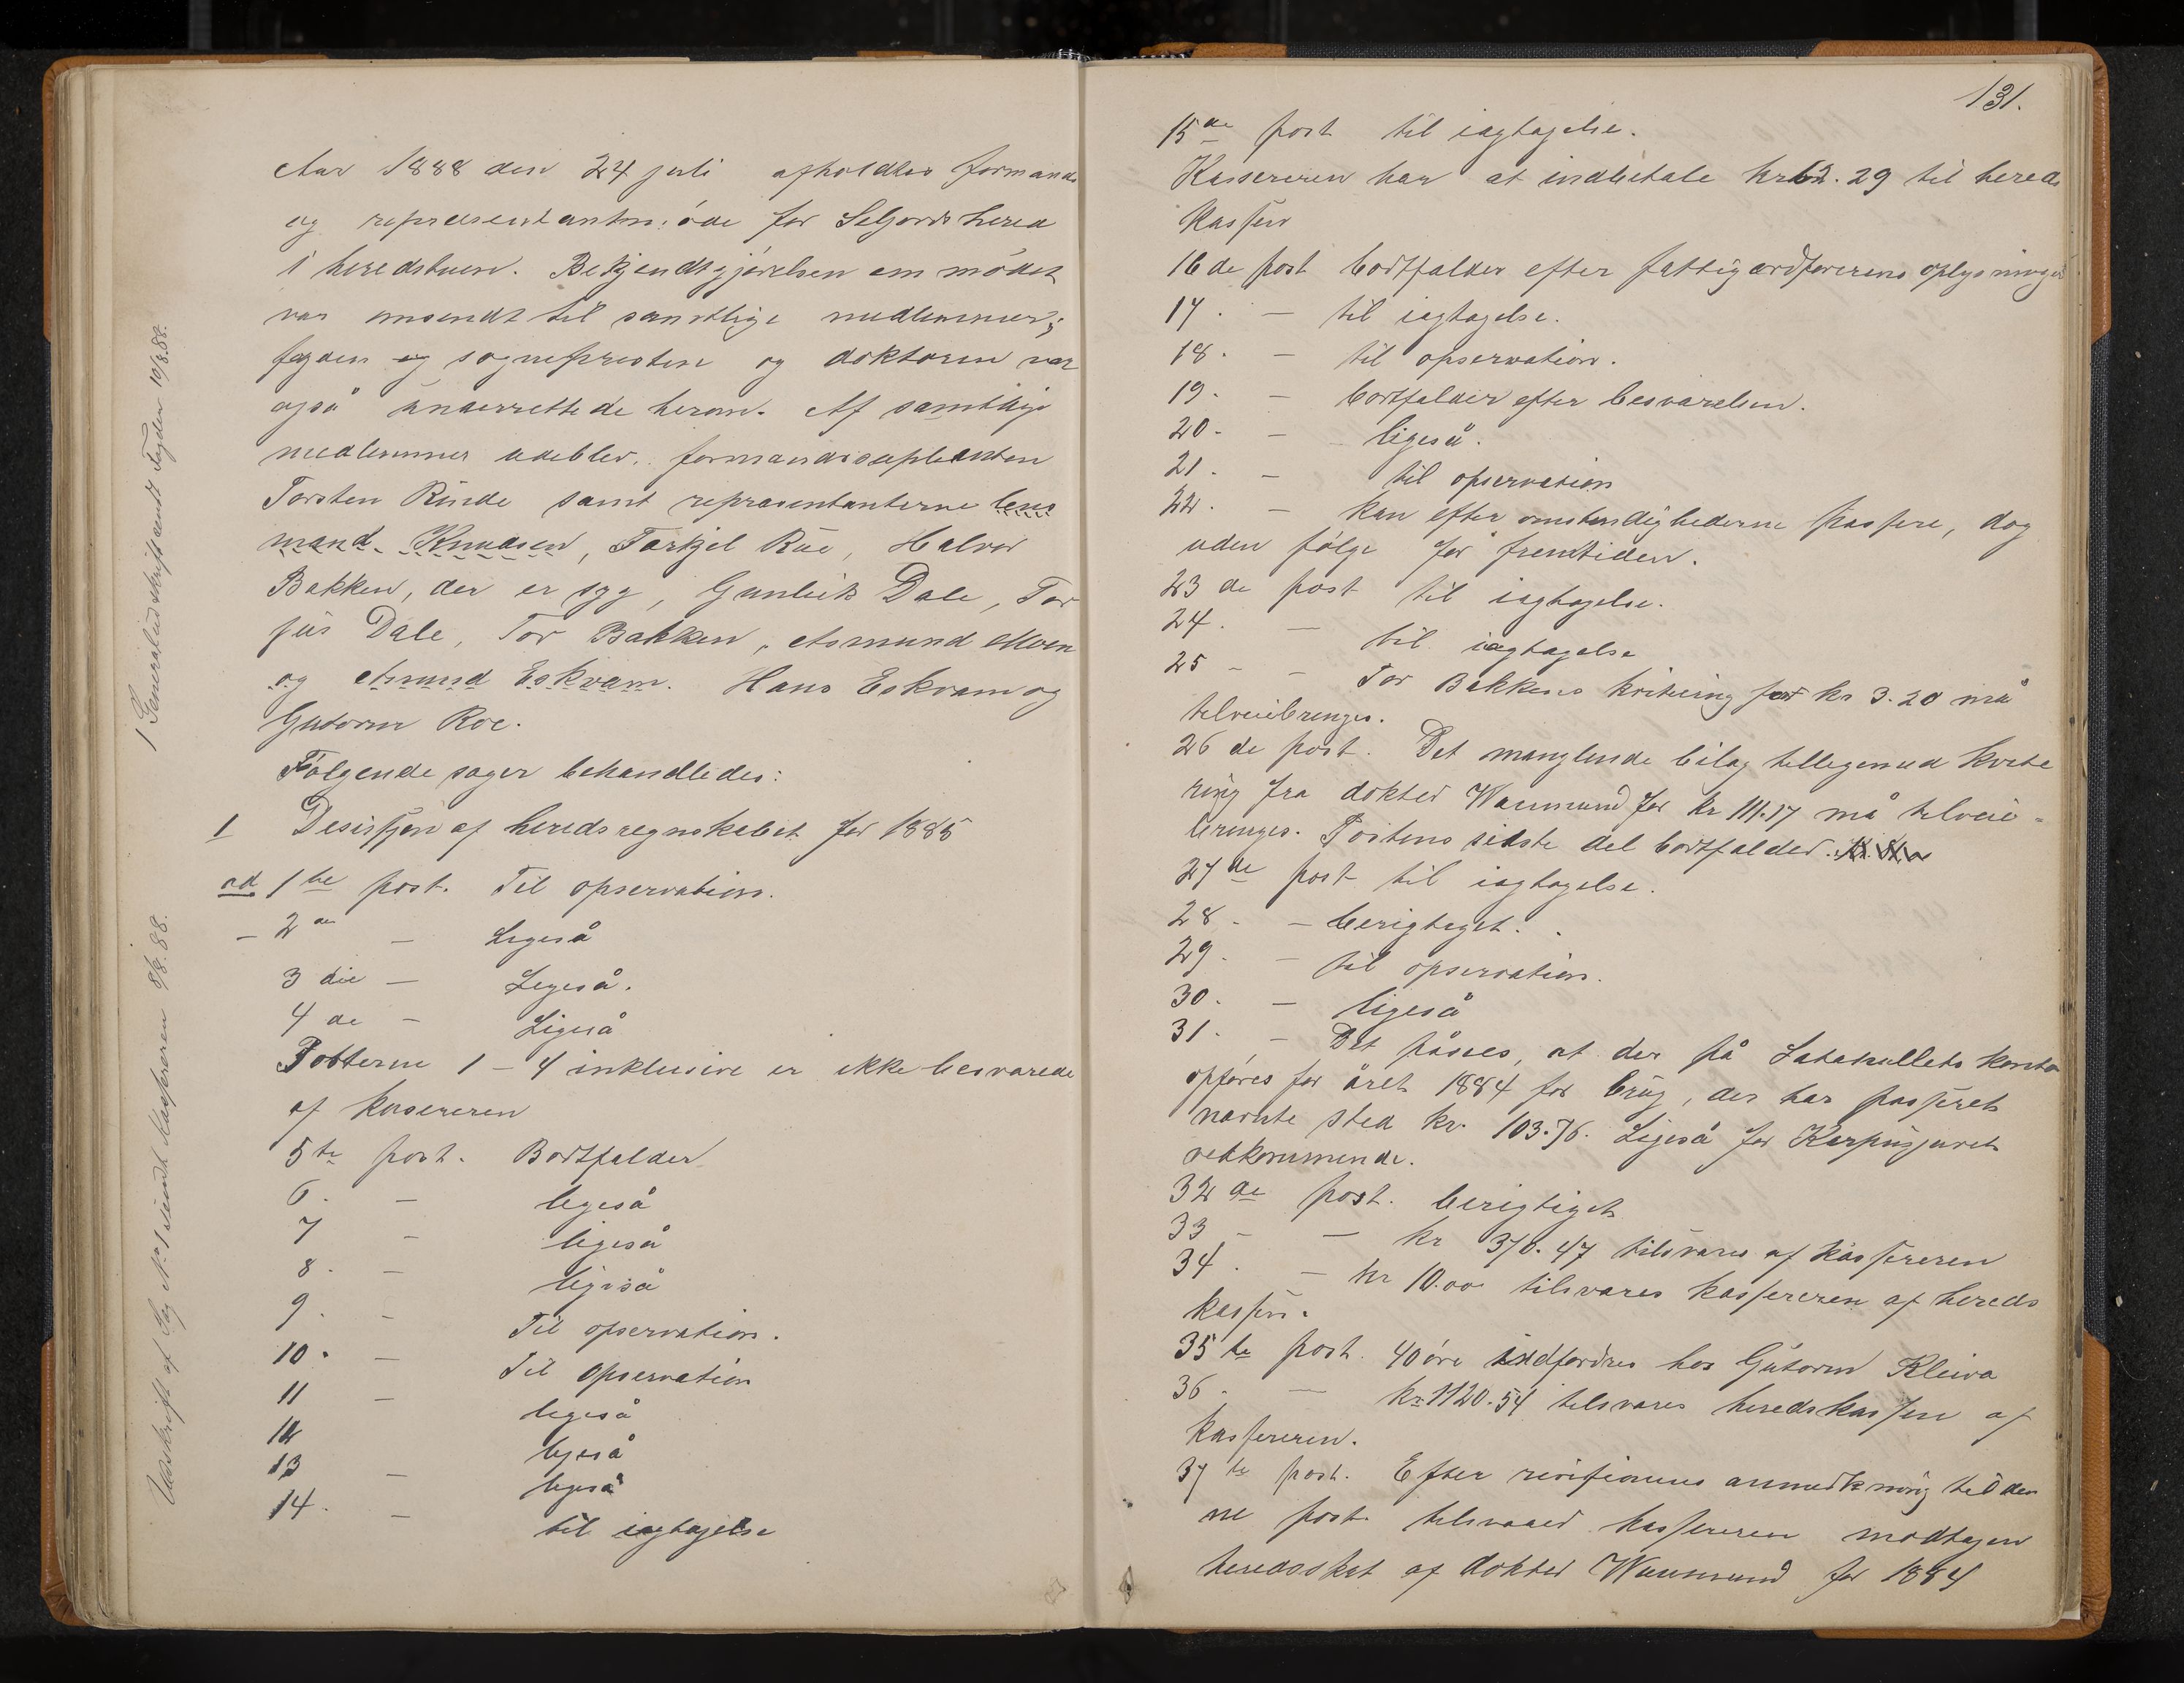 Aar 1888 den 24 juli afholdtes formands
og repræsentantmöde for Seljords hered
i heredstuen. Bekjendtgjörelsen om mödet
var omsendt til samtlige medlemmer;
fogden og sognepresten og doktoren var
også underrettede herom. Af samtlige
medlemmer udeblev formandssuplanten
Torsten Rinde samt representanterne lens
mand Knudsen, Tarkjel Rue, Halvor
Bakken, der er syg, Gunleik Dale, Tar
jus Dale, Tor Bakken, Asmund Moen
og Amund Eskvam. Hans Eskvam og
Gutorm Roe.
Følgende sager behandledes:
1 Desisjon af heredsregnskabet for 1885
ad 1te post. Til opservation.
- 2den - Ligeså
3 die - Ligeså.
4 de - Ligeså
Posterne 1 - 4 inklusive er ikke besvarede
af kasereren
5te post. Bortfalder
6. - ligeså
7 - ligeså
8. - ligeså
9. - Til opservation.
10. - Til opservation
11 - ligeså
12 ligeså
13 - ligeså
14. - til iagtagelse
1 Generaludskrift sendt Fogden 10/8.88.
Udskrift af Sag No 1 sendt Kassereren 8/8.88.
131.
15de post til iagtagelse.
Kassereren har at indbetale kr 62.29 til hereds
kassen
16 de post bortfalder efter fattigordførerens oplysninger
17. - til iagtagelse.
18. - til opservation.
19. - bortfalder efter besvarelsen.
20. - ligeså.
21. - til opservation
22. - kan efter omstendighederne passere, dog
uden følge for fremtiden.
23 de post til iagtagelse.
24. - til iagtagelse
25 - - Tor Bakkens kvitering for kr 3.20 må
tilveiebringes.
26 de post. Det manglende bilag tilligemed kvite
ring fra dokter Waumund for kr 111.17 må tilveie-
bringes. Postens sidste del bortfalder.
27de post til iagtagelse.
28. - berigtiget.
29. - til opservation.
30. - ligeså
31. - Det påsees, at der på konto
opføres for året 1884 for brug, der har passeret
nævnte sted kr. 103.76. Ligeså for
vedkommende.
32de post. berigtiget
33 - - kr 370.47 tilsvares af kassereren
34. - kr 10.00 tilsvares kassereren af hereds
kassen.
35te post. 40 öre indfordres hos Gutorm Kleiva
36. - kr 1120.54 tilsvares heredskassen af
kassereren.
37te post. Efter revisionens anmerkning til den
ne post tilsvarer kassereren modtagen
heredsskat af dokter Waumund for 1884